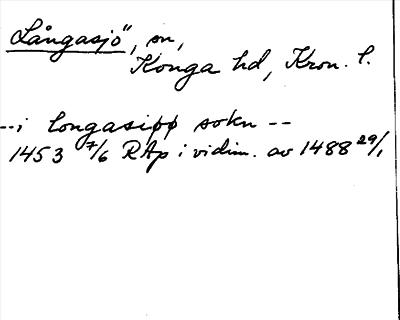 Långasjö", sn,
Konga hd, Kron. l.
--i longasiøø sokn --
1453 7/6 RAp i vidim. av 1488 29/1